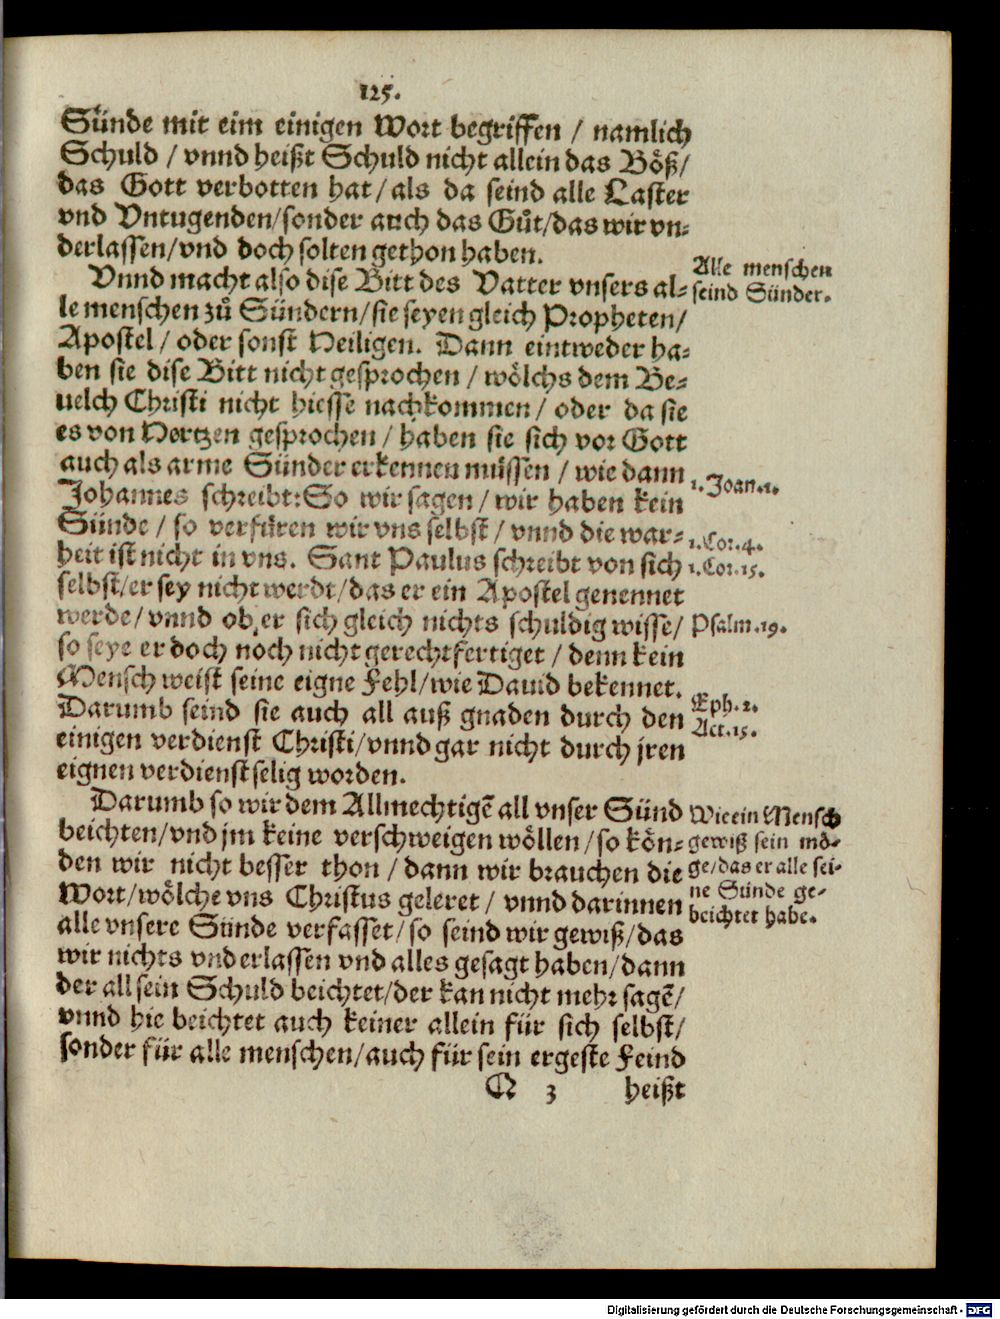 125.
Sünde mit eim einigen Wort begriffen / namlich
Schuld / vnnd heißt Schuld nicht allein das Böß/
das Gott verbotten hat / als da seind alle Laster
vnd Vntugenden/sonder auch das Gůt/das wir vn⸗
derlassen/vnd doch solten gethon haben.
Vnnd macht also dise Bitt des Vatter vnsers al⸗
le menschen zů Sündern/sie seyen gleich Propheten/
Apostel / oder sonst Heiligen. Dann eintweder ha⸗
ben sie dise Bitt nicht gesprochen / wölchs dem Be⸗
uelch Christi nicht hiesse nachkommen / oder da sie
es von Hertzen gesprochen / haben sie sich vor Gott
auch als arme Sünder erkennen müssen / wie dann
Johannes schreibt: So wir sagen / wir haben kein
Sünde / so verfüren wir vns selbst / vnnd die war⸗
heit ist nicht in vns. Sant Paulus schreibt von sich
selbst/er sey nicht werdt/das er ein Apostel genennet
werde/ vnnd ob er sich gleich nichts schuldig wisse/
so seye er doch noch nicht gerechtfertiget / denn kein
Mensch weist seine eigne Fehl/wie Dauid bekennet.
Darumb seind sie auch all auß gnaden durch den
einigen verdienst Christi/vnnd gar nicht durch jren
eignen verdienst selig worden.
Darumb so wir dem Allmechtigē all vnser Sünd
beichten/vnd jm keine verschweigen wöllen/so kön⸗
den wir nicht besser thon / dann wir brauchen die
Wort/wölche vns Christus geleret / vnnd darinnen
alle vnsere Sünde verfasset/so seind wir gewiß/das
wir nichts vnderlassen vnd alles gesagt haben/dann
der all sein Schuld beichtet/der kan nicht mehr sagē/
vnnd hie beichtet auch keiner allein für sich selbst/
sonder für alle menschen/auch für sein ergeste Feind
Q 3 heißt
Alle menschen
seind Sünder.
1. Joan. 1.
1. Cor. 4.
1. Cor. 15.
Psalm. 19.
Eph. 2.
Act. 15.
Wie ein Mensch
gewiß sein mö⸗
ge/das er alle sei⸗
ne Sünde ge⸗
beichtet habe.
Digitalisierung gefördert durch die Deutsche Forschungsgemeinschaft - DFG